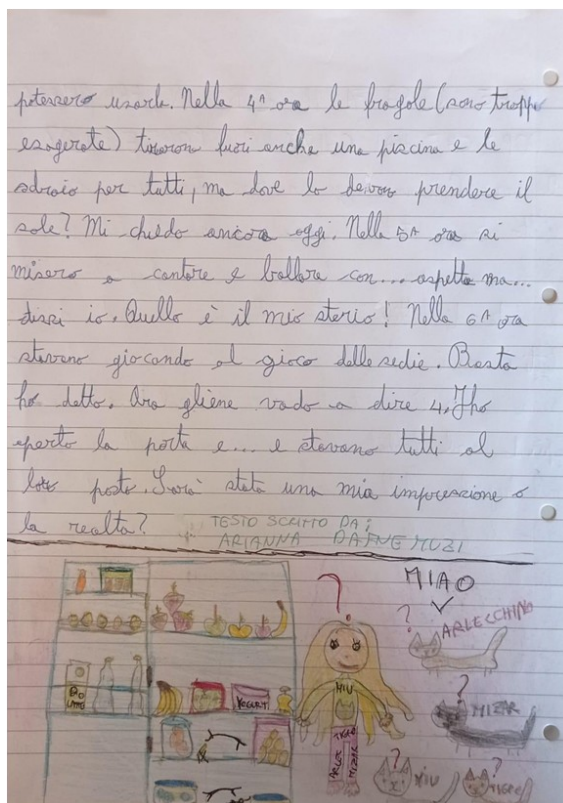 potessero usarla. Nella 4ª ora le fragole (sono troppo
esagerate) tiraron fuori anche una piscina e le
sdraio per tutti, ma dove lo devono prendere il
sole? Mi chiedo ancora oggi. Nella 5ª ora si
misero a cantare e ballare con... aspetta ma...
dissi io. Quello è il mio sterio! Nella 6ª ora
stavano giocando al gioco delle sedie. Basta
ho detto. Ora gliene vado a dire 4. Iho
aperto la porta e... e stavano tutti al
loro posto. Sarà stata una mia impressione o
la realtà?
TESTO SCRITTO DA:
ARIANNA DAFNE MUZI
MIAO
ARLECCHINO
MIZAR
MIU
TIGRO
MIU
TIGRO
ARLEC
MIZAR
YOGURT